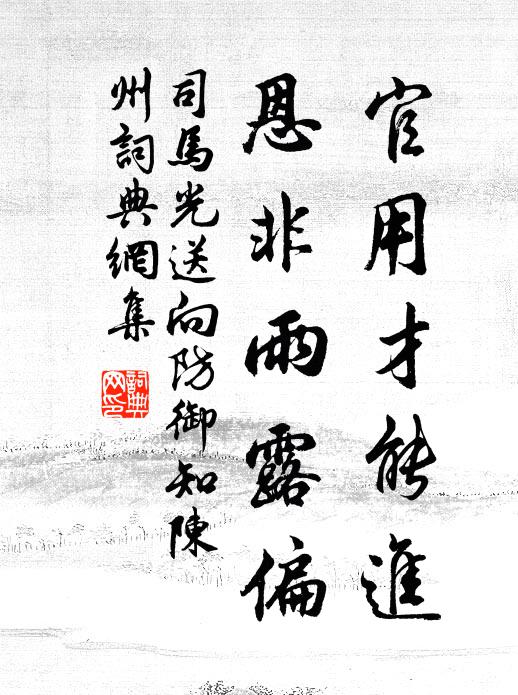 官用才能進
恩非雨露偏
司馬光送向防御知陳
州詞典網集
詞典
网印